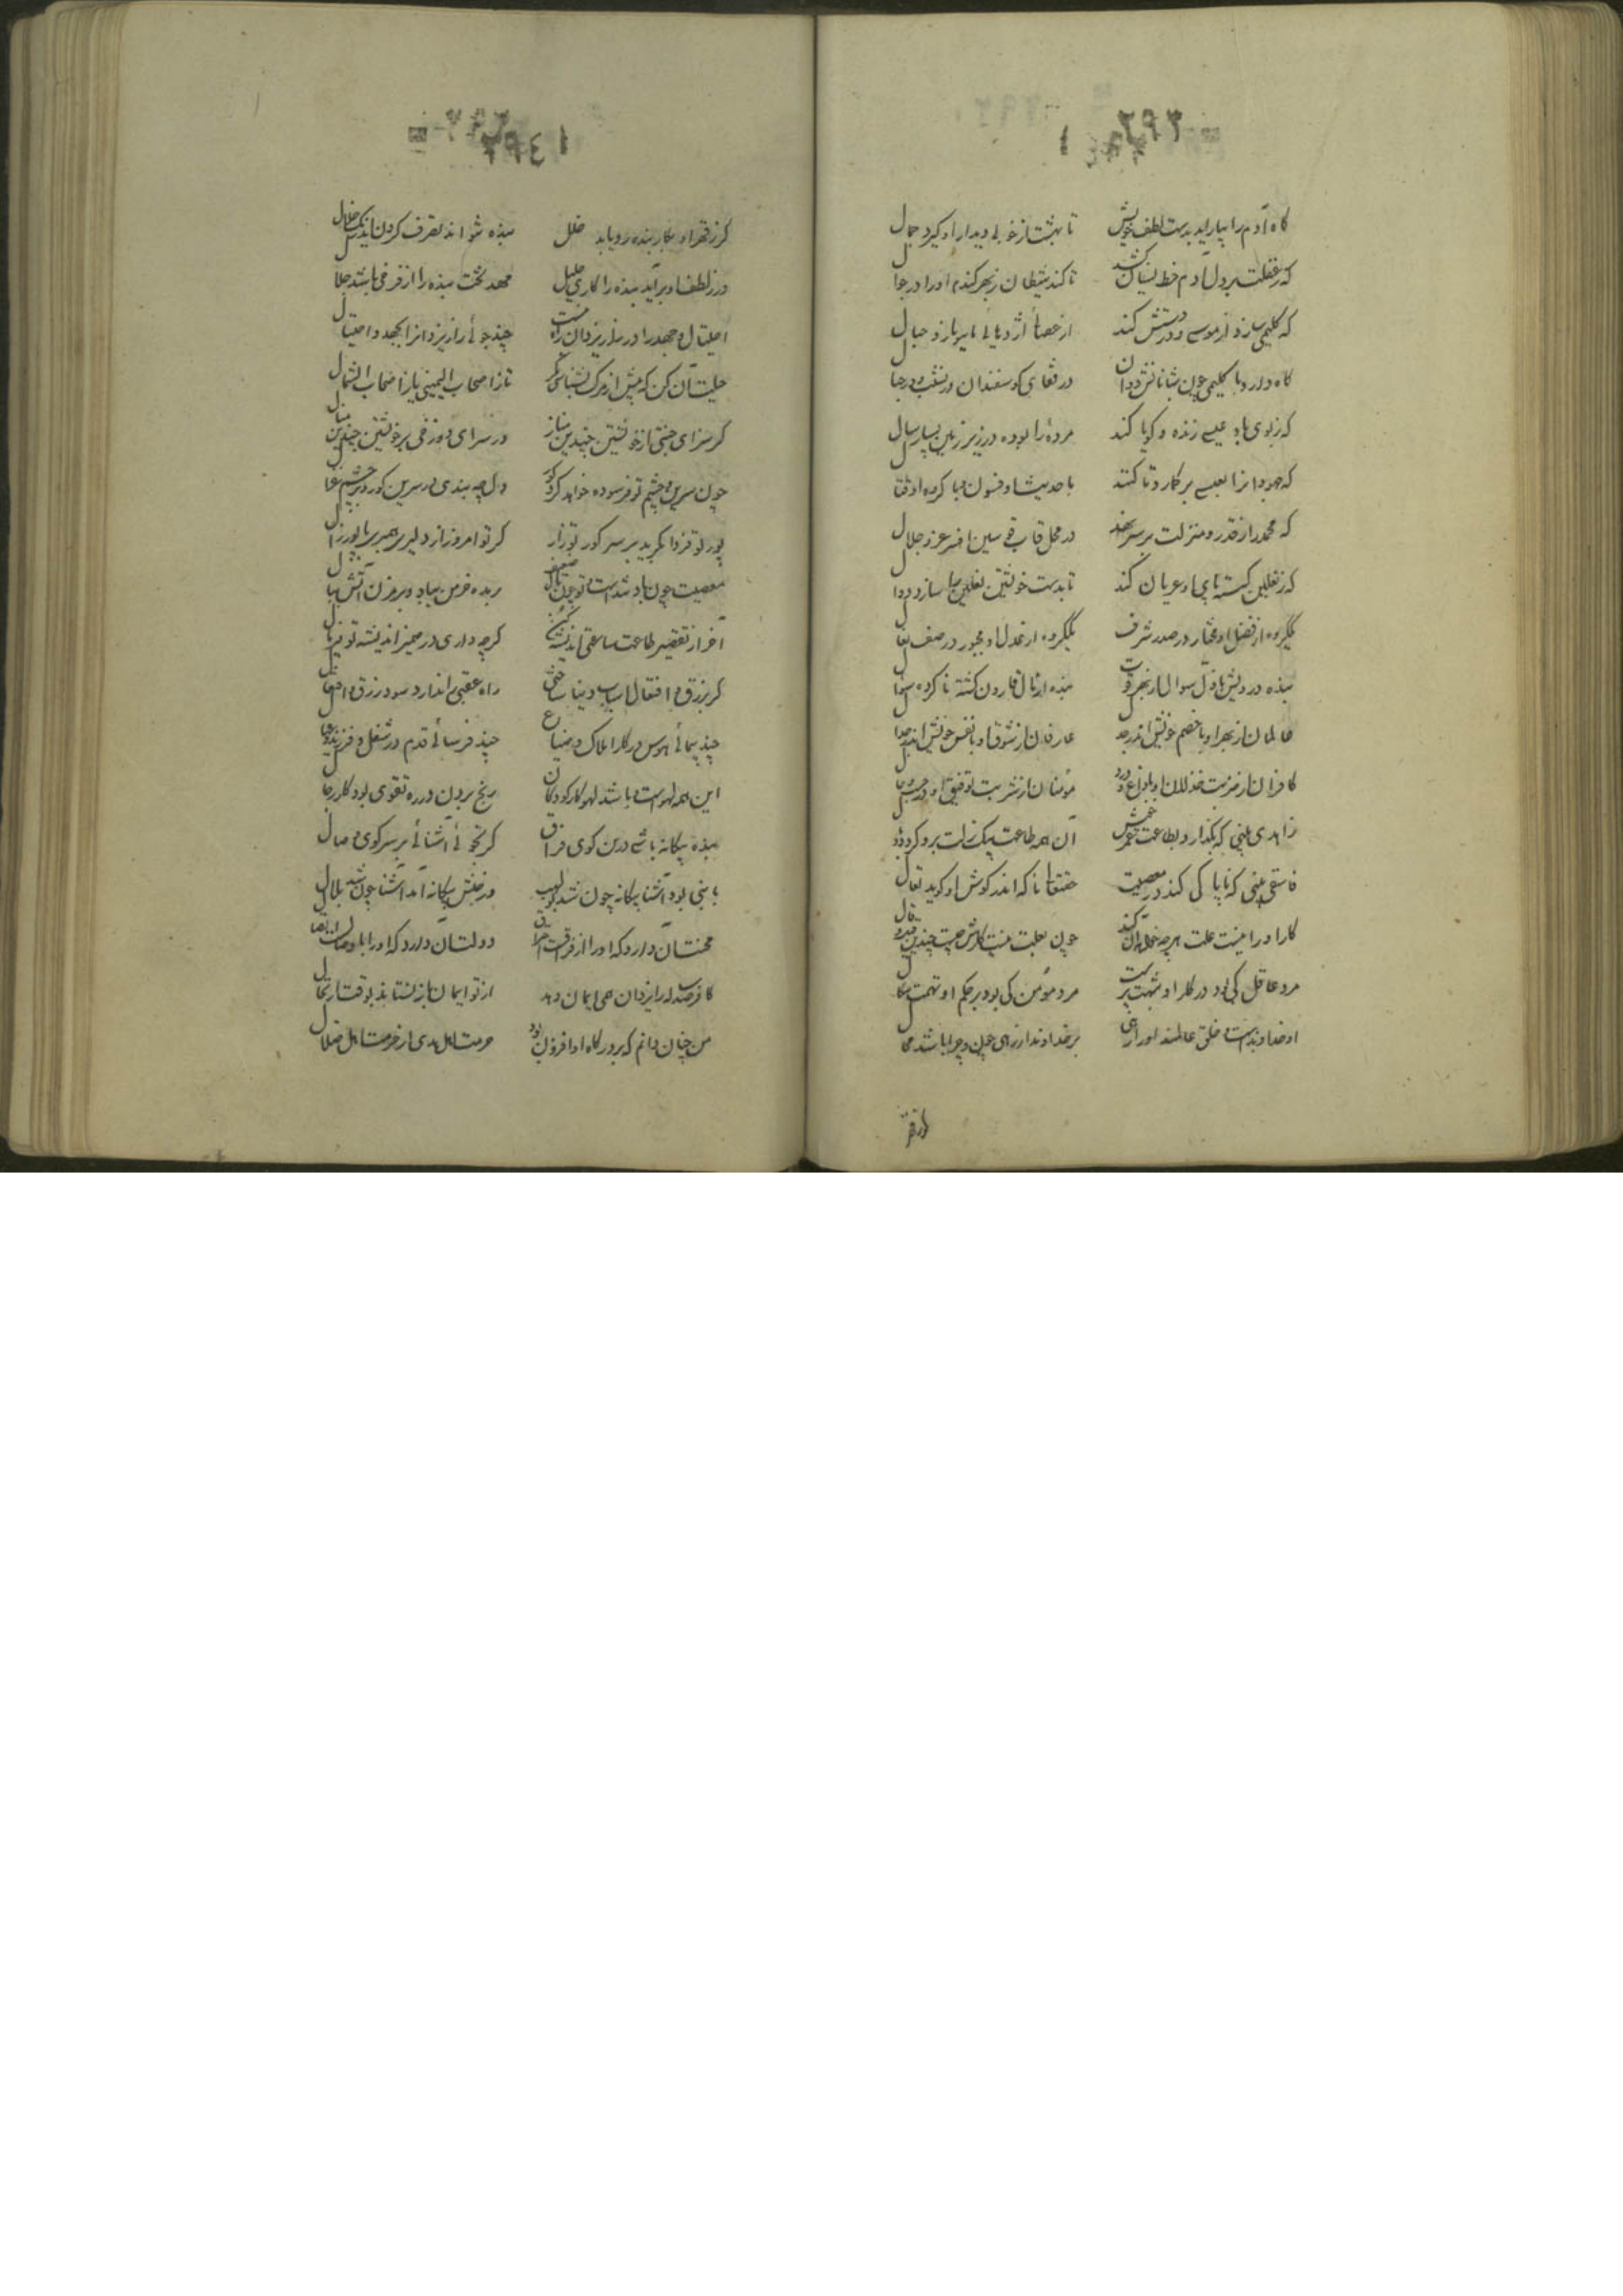 ۲۹۳
گاه آدم را بیاراید بدست لطف خویش تا بهشت از خوبی دیدار او گیرد جمال
که ز غفلت بر دل آدم خط نسیان کشد تا کند شیطان ز بهر گندم او را در جوال
که کلیمی سازد از موسی و در دستش کند از عصا اژدهائی با
گاه دارد با کلیمی چون شبانانش دوان در قفای گوسفندان در نشیب و در جبال
که ز بوی باد عیسی زنده و گویا کند مردهٔ را بوده در زیر زمین بسیار سال
که جهودانرا بعیسی بر گمارد تا کنند با حدیث او فسون
که محمد را ز قدر و منزلت بر سر نهد در محل قاب قوسین افسر عز و جلال
که ز نعلین گسسته پای او عریان کند تا بدست خویشتن نعلین را سازد دوال
یک گروه از فضل او مختار در صدر شرف یک گروه از عدل او مجبور در صف نعال
بنده درویش با ذل سوال از بهر قوت بنده از مال قارون گشته ناکرده سوال
عالمان از بهر او با خصم خویش اندر جدل عارفان از شوق او با نفس خویش اندر جدال
کافران از ضربت خذلان او با داغ و درد مؤمنان از شربت توفیق او در
زاهدی بینی که بگذارد بطاعت عمر خویش آن همه طاعت بیک زلت برو گردد وبال
فاسقی بینی که ناپاکی کند در معصیت حقتعالی ناگه اندر گوش او گوید تعال
کار او را نیست علت هر چه خواهد آن کند چون بعلت نیست کارش چیست چندین قیل و قال
مرد عاقل کی بود در کار او شبهت پرست مرد مؤمن کی بود بر حکم او تهمت سگال
او خداوندست و خلق عالمند او را رهی بر خداوند از رهی چون و چرا باشد محال
گر ز قهر
۲۹٤
گر ز قهر او بکار بنده رو یابد خلل بنده نتواند تصرف کردن اندر
ور ز لطف او برآید بنده را کاری جلیل جهد و بخت بنده را از فر
احتیال و جهد را در راز یزدان راه نیست چند جوئی راز یزدانرا بجهد و احتیال
حیلت آن کن که پیش از مرگ بشناسی مگر تا ز اصحاب الیمینی یا ز اصحاب الشمال
گر سزای جنتی از خویشتن چندین مناز ور سزای دوزخی بر خویشتن چندین منال
چون سرین و چشم تو فرسوده خواهد کرد گور دل چه بندی در سرین گور و در چشم غزال
پور تو فردا بگرید بر سر گور تو زار گر تو امروز از دلیری همبری با پور زال
معصیت چون باد تند است و تو چون نال ضعیف
آخر از تقصیر طاعت ساعتی اندیشه کن گرچه داری در ضمیر اندیشه
گر بزرق و افتعال اسباب دنیا ساختی راه عقبی را ندارد سود زرق و افتعال
چند پیمائی هوس در کار املاک و ضیاع چند فرسائی قدم در شغل فرزند و عیال
این همه لهوست و باشد لهو کار کودکان رنج بردن در ره تقوی بود کار رجال
بنده بیگانه باشی در این کوی فراق گر نجوئی آشنائی بر سر کوی وصال
با نبی بود آشنا بیگانه چون شد بولهب وز حبش بیگانه آمد آشنا چون شد بلال
محنت آن دارد که او را از فراقست احتراق دولت آن دارد که او را با وصالست اتصال
کافر صد ساله را یزدان همی ایمان دهد از تو ایمان باز نستاند بوقت ارتحال
من چنان دانم که بر درگاه او افزون بود حرمت اهل هدی از حرمت اهل ضلال